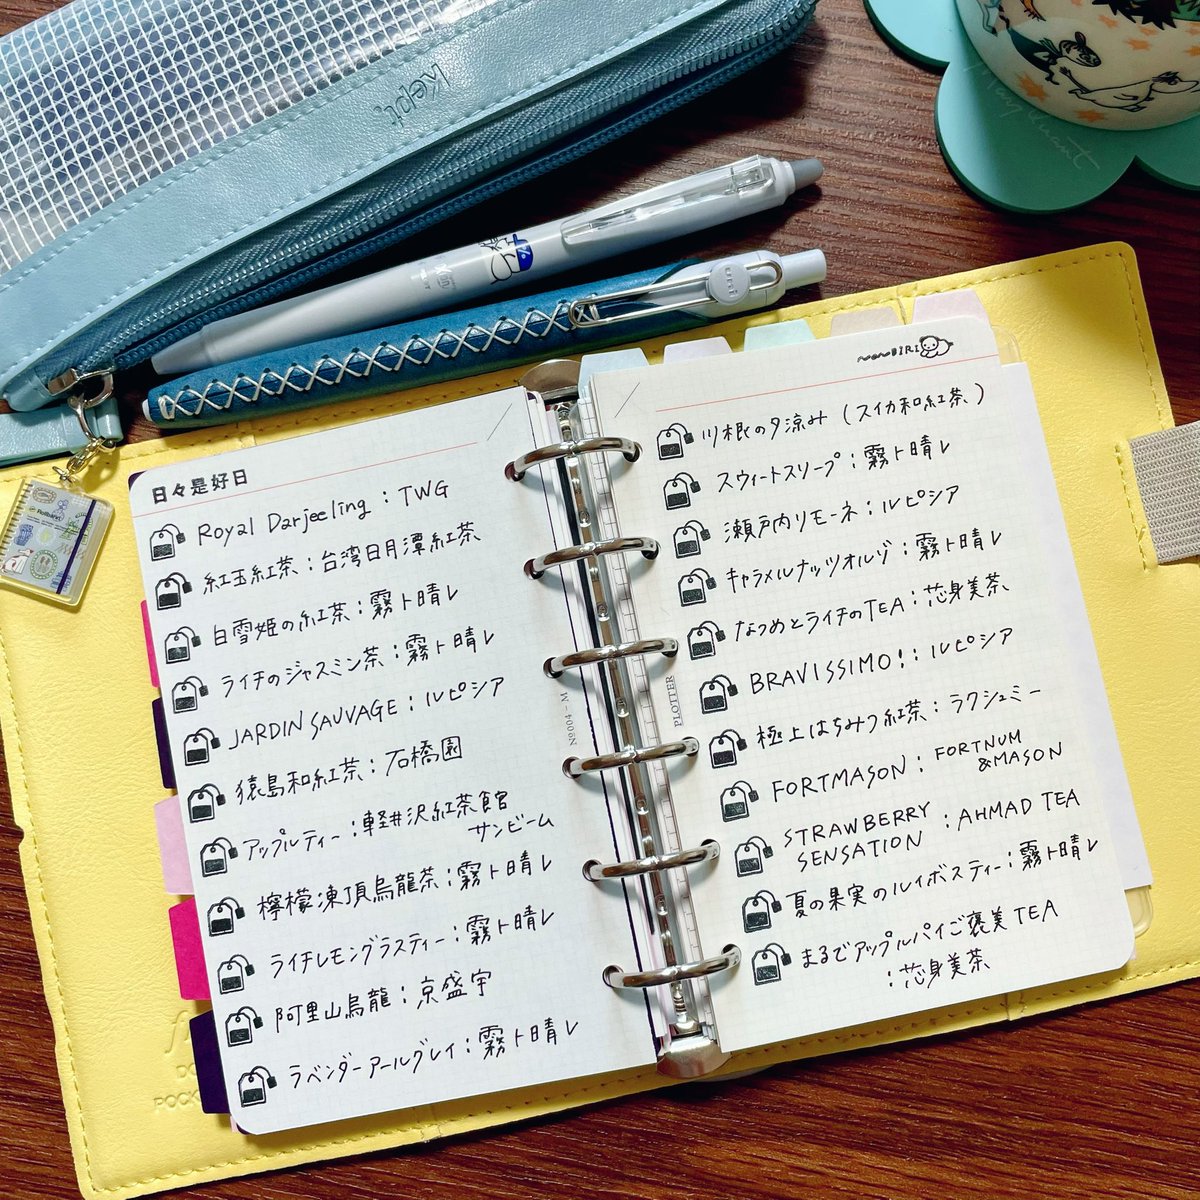 Kept
uni
日々是好日
Royal Darjeeling：TWG
紅玉紅茶：台湾日月潭紅茶
白雪姫の紅茶：霧ト晴レ
ライチのジャスミン茶：霧ト晴レ
JARDIN SAUVAGE：ルピシア
猿島和紅茶：石橋園
アップルティー：軽井沢紅茶館
サンビーム
檸檬凍頂烏龍茶：霧ト晴レ
ライチレモングラスティー：霧ト晴レ
阿里山烏龍：京盛宇
ラベンダーアールグレイ：霧ト晴レ
Nº004 – M
PLOTTER
川根の夕涼み（スイカ和紅茶）
スウィートスリープ：霧ト晴レ
瀬戸内リモーネ：ルピシア
キャラメルナッツオルゾ：霧ト晴レ
なつめとライチのTEA：芯身美茶
BRAVISSIMO!：ルピシア
極上はちみつ紅茶：ラクシュミー
FORTMASON：FORTNUM
&MASON
STRAWBERRY
SENSATION：AHMAD TEA
夏の果実のルイボスティー：霧ト晴レ
まるでアップルパイご褒美TEA
：芯身美茶
POCK